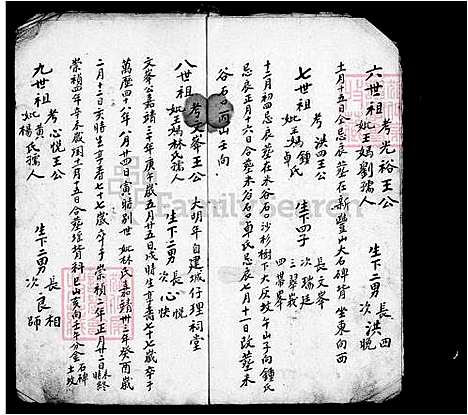 六世祖 考光裕王公 妣王媽劉孺人 生下二男 長洪四 次洪晚
十月十五日仝忌辰 墓在新豐山大石碑背 坐東向西
七世祖 考洪四王公 妣王媽鍾氏卓氏 生下四子 長文峯 次瑞廷 三翠 四
十二月初四忌辰 墓在禾谷石沙杉樹下大灰坟午山子向 鍾氏
忌辰正月十六日合墓禾谷石 卓氏忌辰七月十一日改墓禾
谷石口酉山 向
八世祖 考文峯王公 妣王媽林氏孺人 明年自建城仔理祠堂 生下二男 長心悅 次心快
文峯公嘉靖三十年庚午歲五月廿五日戌時生 享壽七十七歲 卒于
萬歷四十八年八月廿四日寅時別世 妣林氏嘉靖卅二年癸酉歲
二月十二日亥時生 享壽七十七歲 卒于崇禎二年正月廿二日終
崇禎四年辛未歲閏十二月十五日合墓 背科巳山亥向 分金 石碑
九世祖 考心悅王公 妣黃氏楊氏孺人 生下二男 長相 次良師
FamilySearch